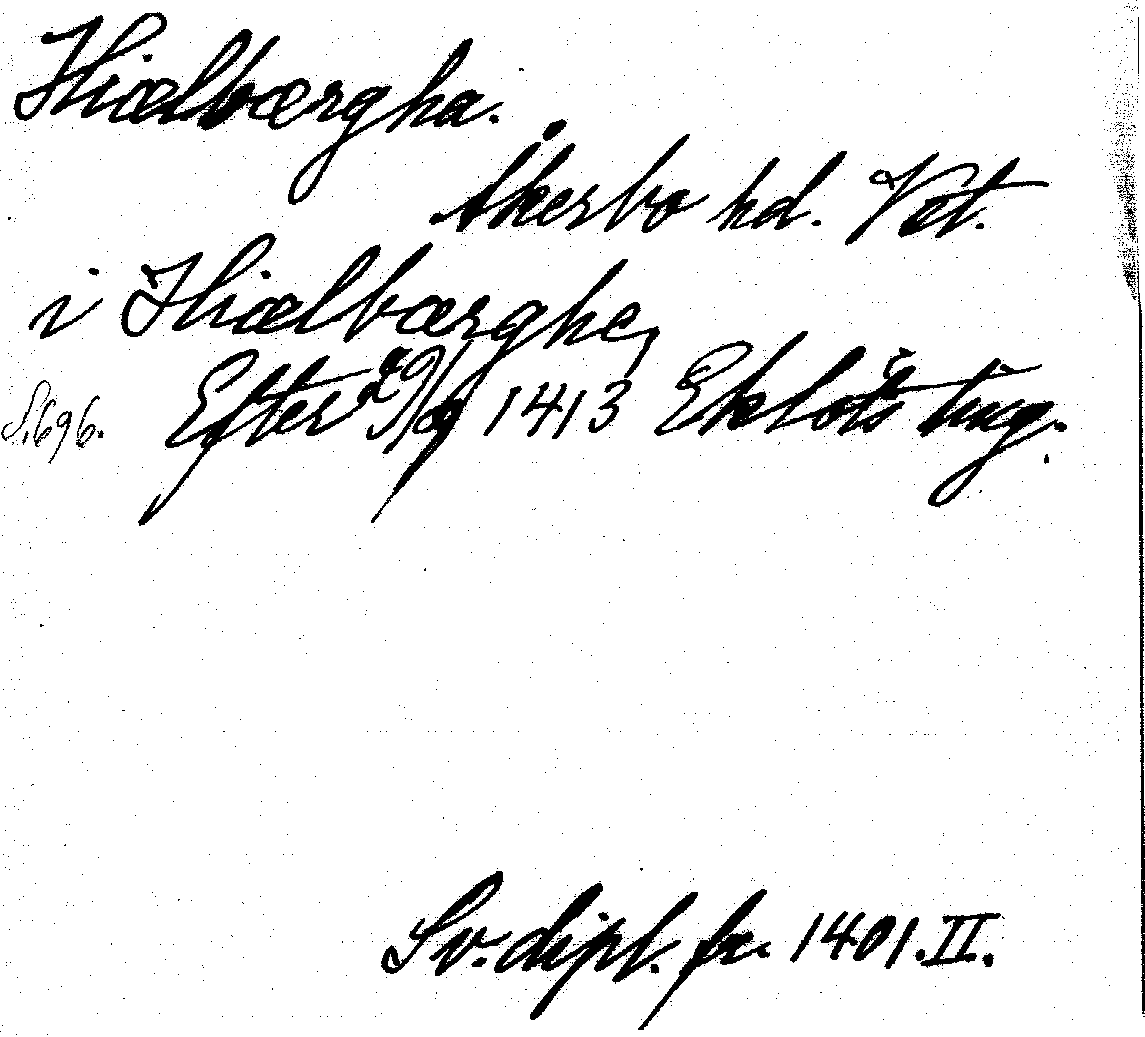 Hiælbærgha.
Åkerbo hd. Vst.
i Hiælbærghe,
S. 696. Efter 29/9 1413 Ekeloss ting.
Sv. dipl. fr. 1401. II.